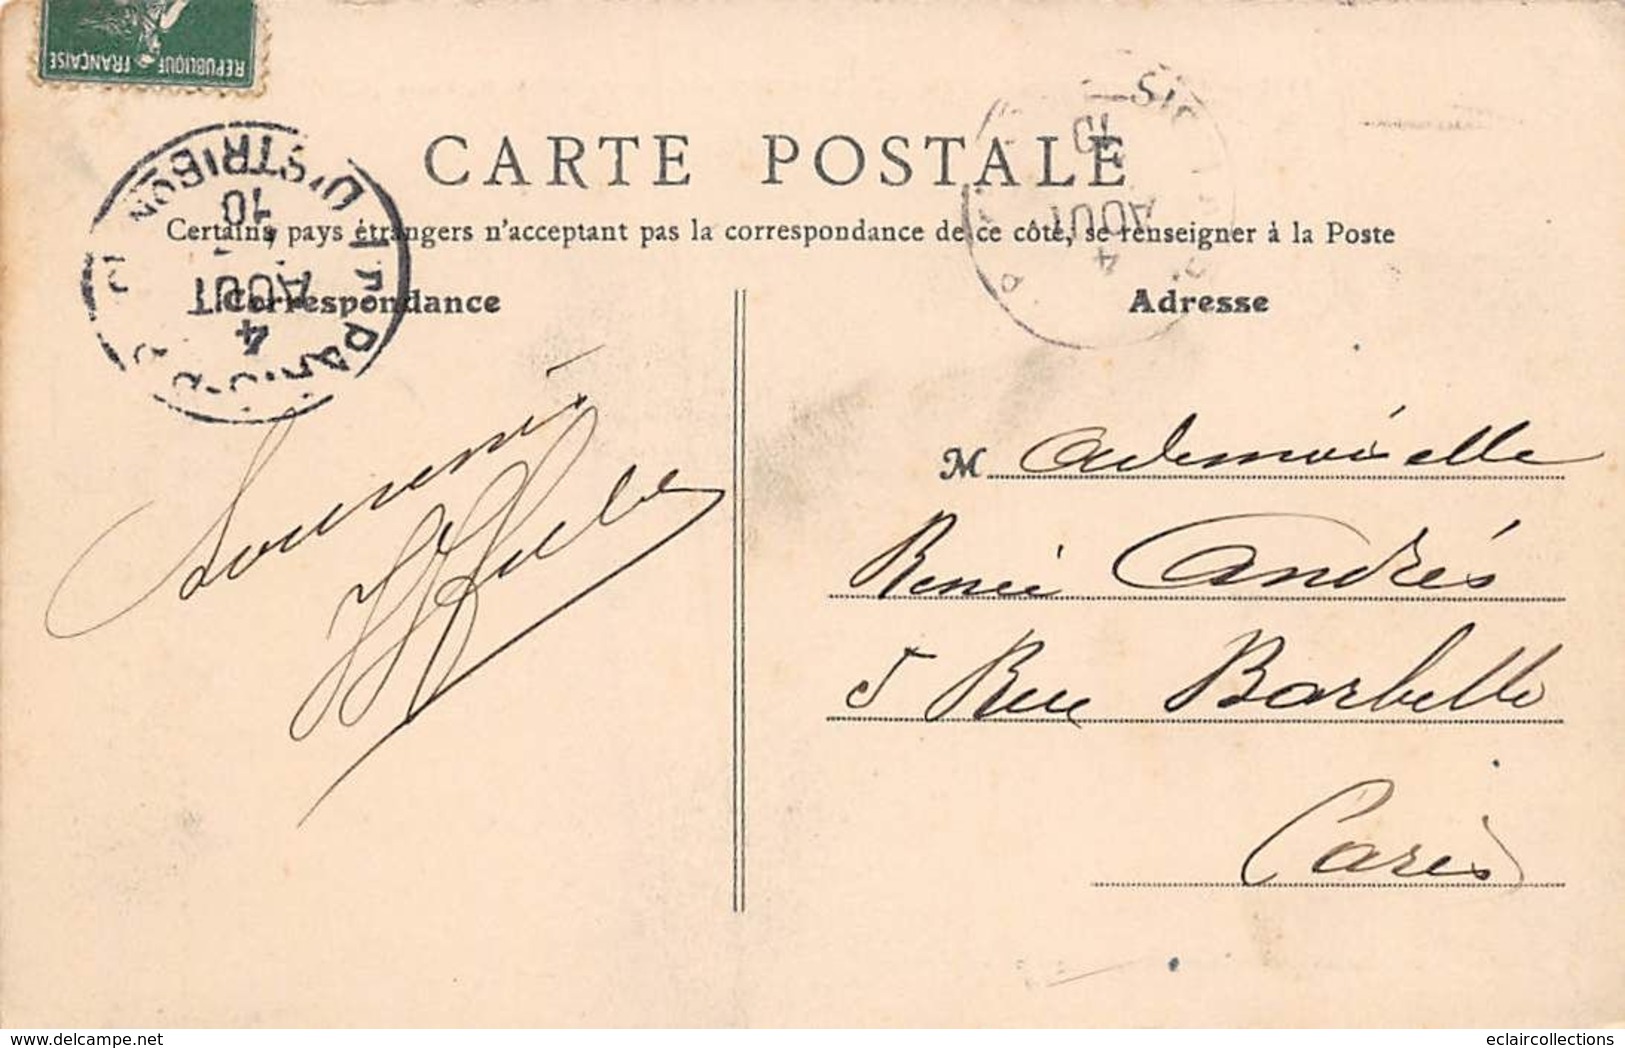 REPUBLIQUE FRANÇAISE
CARTE POSTALE
Certains pays étrangers n'acceptant pas la correspondance de ce côté, se renseigner à la Poste
Correspondance
Adresse
DISTRIBON
10
AOUT
4
10
AOUT
4
Souvenir
Mademoiselle
Renée Andrés
5 Rue Barbette
Paris
eclaircollections